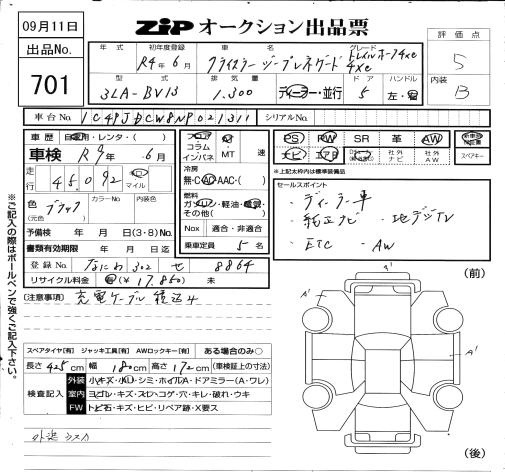 09月11日
ZIP オークション出品票
評価点
5
内装
B
出品No.
701
年式 初年度登録 車名 グレード
R4年6月 クライスラー ジープレネゲード トレイルホーク4xe
4xe
型式 排気量 ドア ハンドル
3LA-BV13 1,300 ディーラー・並行 5 左・右
車台No. シリアルNo.
車歴 自家用・レンタ・( )
車検 R9年 6月
走行 45092 マイル
色 (元色) ブラック カラーNo. 内装色
予備検 年 月 日(3・8)No.
書類有効期限 年 月 日迄
登録No. なにわ 302 せ 8864
リサイクル料金 (¥17,850) 未
フロア コラム インパネ
MT
速
冷房
無・C・AAC・( )
燃料
ガソリン・軽油・電気・その他( )
Nox 適合・非適合
乗車定員 5名
PS PW SR 革 AW
ナビ エアB 社外ナビ 社外AW
スペアキー
※上記太枠内は標準装備品
セールスポイント
・ディーラー車
・純正ナビ ・地デジTV
・ETC ・AW
(注意事項) 充電ケーブル積込み
(前)
A'
A'
A'
(後)
スペアタイヤ[有] ジャッキ工具[有] AWロックキー[有] ある場合のみ○
長さ 425cm 幅 180cm 高さ 172cm (車検証上の寸法)
検査記入
外装 小キズ・小凹・シミ・ホイルA・ドアミラー(A・ワレ)
室内 ヨゴレ・キズ・スレ・コゲ・穴・キレ・破れ・ウキ
FW トビ石・キズ・ヒビ・リペア跡・X要ス
※ご記入の際はボールペンで強くご記入下さい。